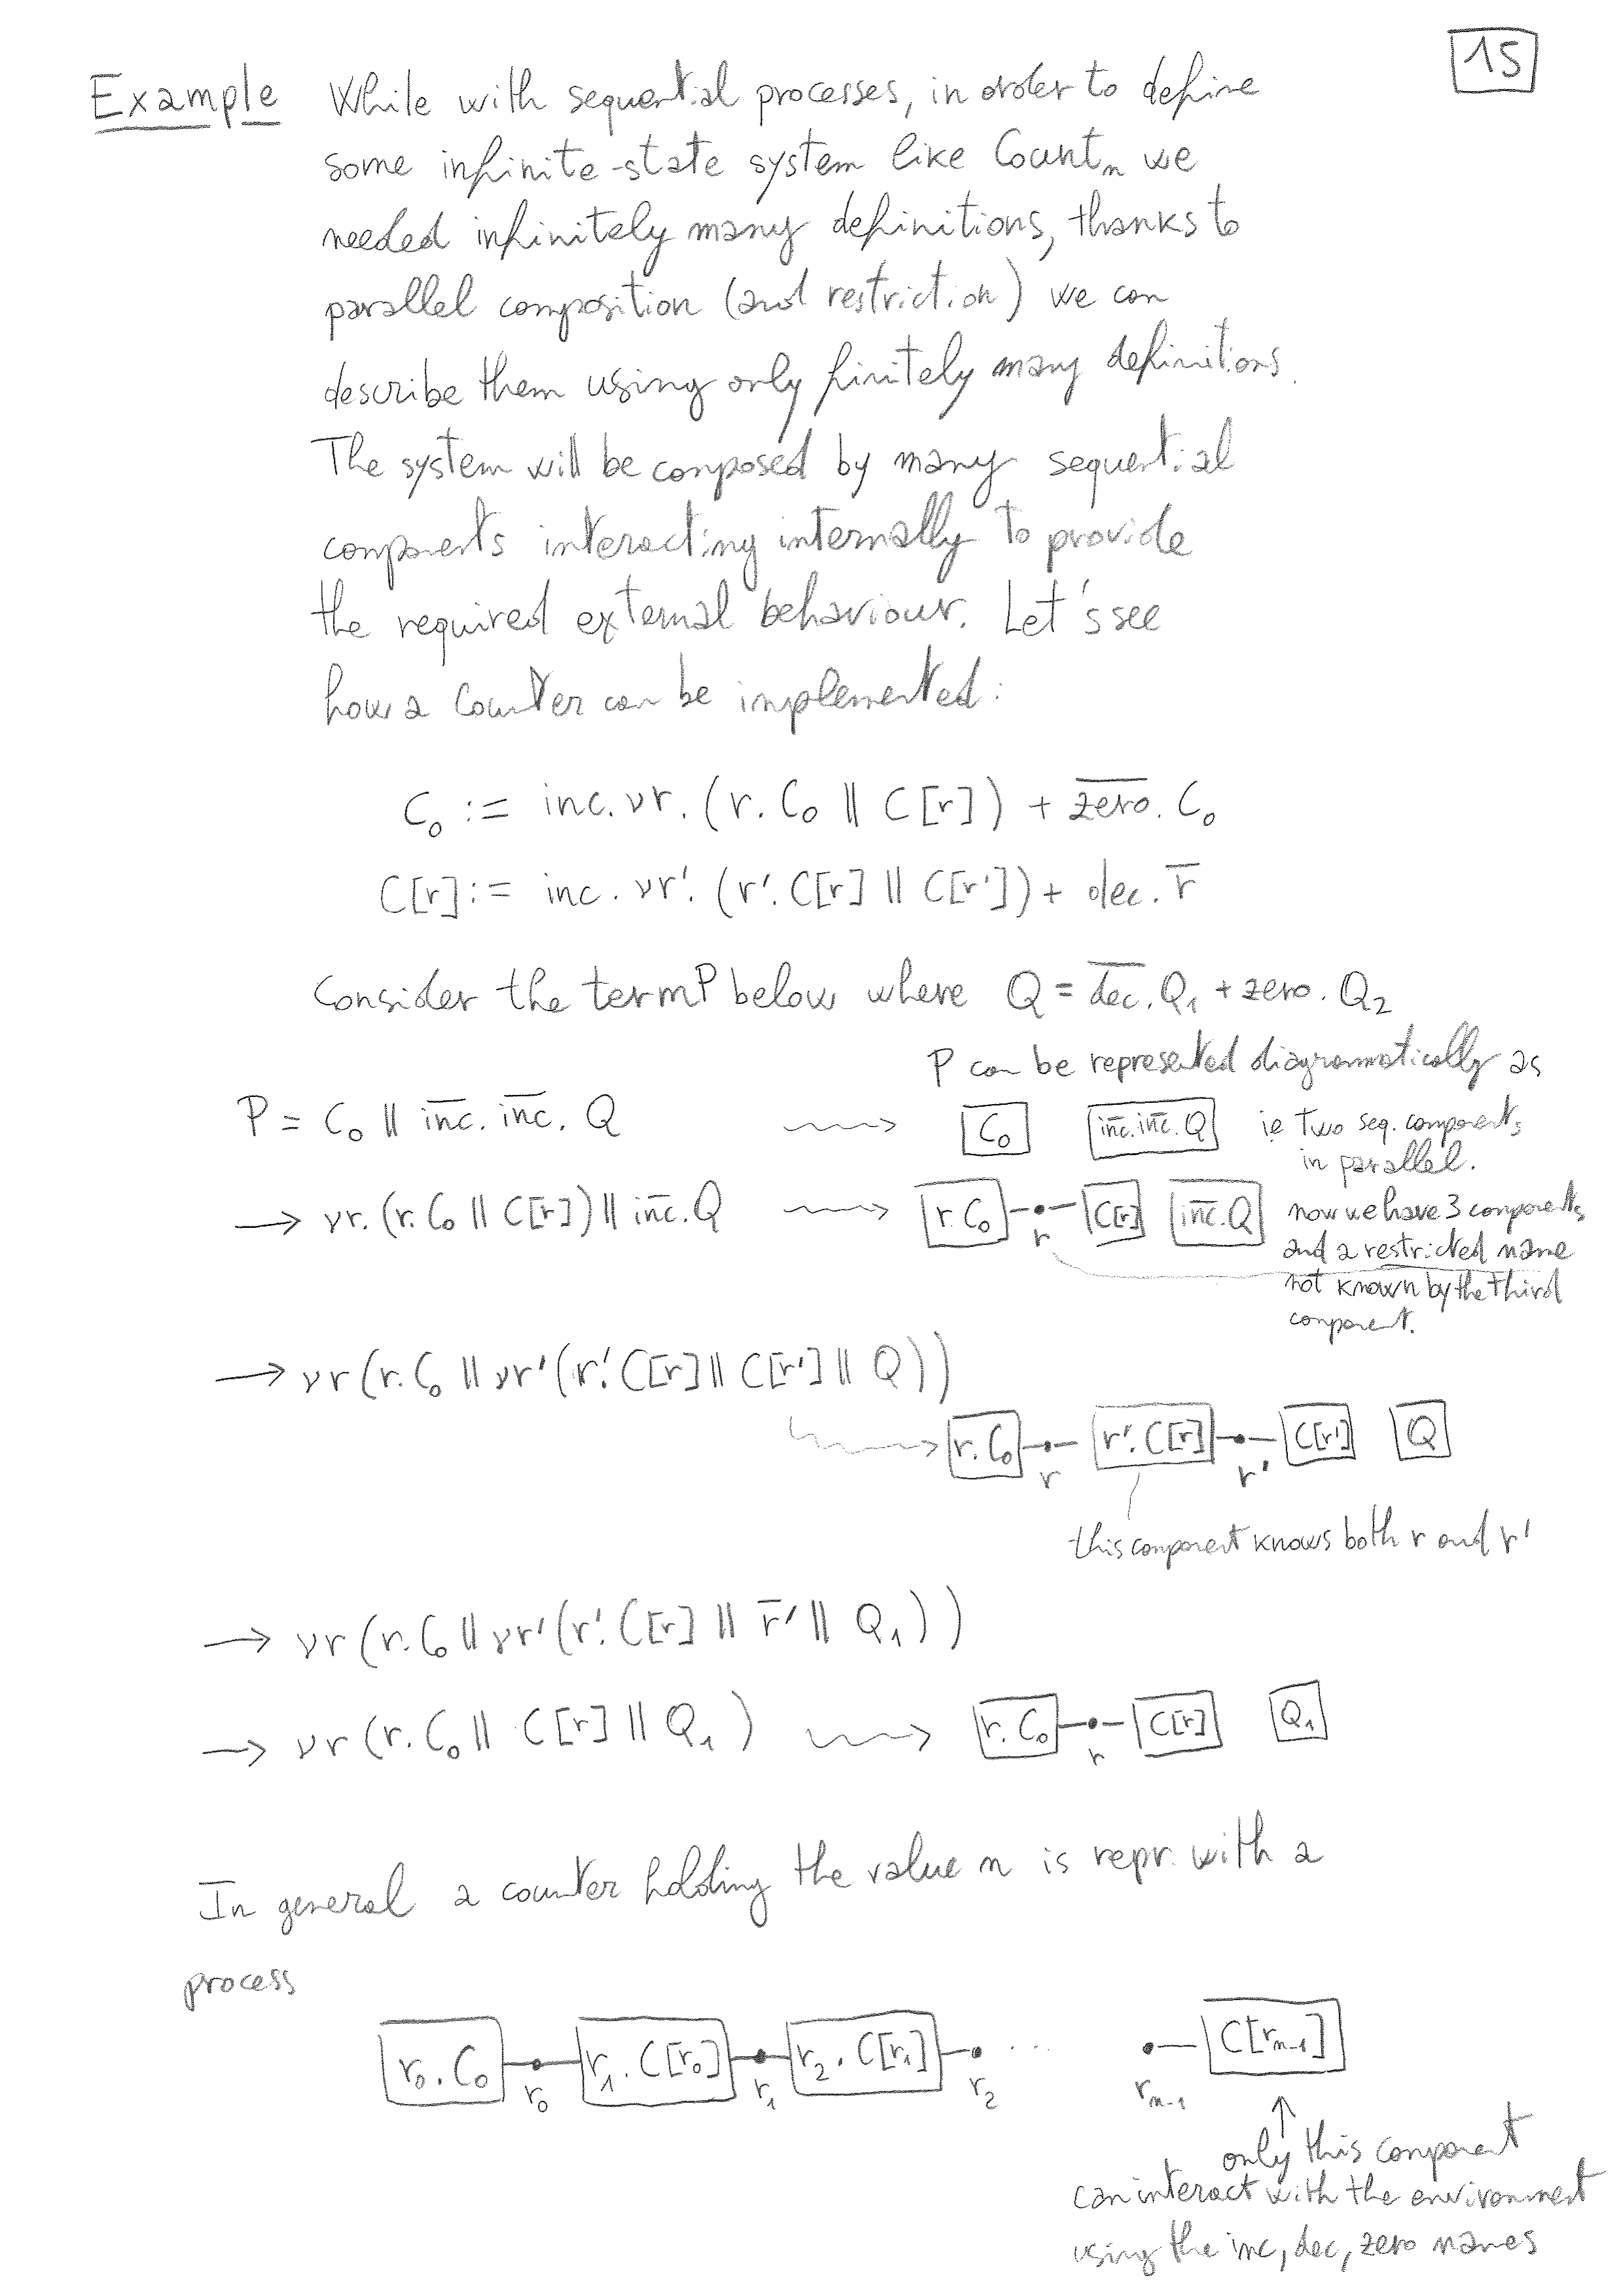 15
Example While with sequential processes, in order to define
some infinite-state system like Countₙ we
needed infinitely many definitions, thanks to
parallel composition (and restriction) we can
describe them using only finitely many definitions.
The system will be composed by many sequential
components interacting internally to provide
the required external behaviour. Let's see
how a counter can be implemented:
C₀ := inc. νr. (r. C₀ ∥ C[r]) + z̅e̅r̅o̅. C₀
C[r] := inc. νr'. (r'. C[r] ∥ C[r']) + dec. r̅
Consider the term P below where Q = d̅e̅c̅. Q₁ + zero. Q₂
P can be represented diagrammatically as
P = C₀ ∥ i̅n̅c̅. i̅n̅c̅. Q ⇝ C₀ i̅n̅c̅. i̅n̅c̅. Q ie two seq. components
in parallel.
→ νr. (r. C₀ ∥ C[r]) ∥ i̅n̅c̅. Q ⇝ r. C₀ r C[r] i̅n̅c̅. Q now we have 3 components
and a restricted name
not known by the third
component.
→ νr (r. C₀ ∥ νr' (r'. C[r] ∥ C[r'] ∥ Q))
⇝ r. C₀ r r'. C[r] r' C[r'] Q
this component knows both r and r'
→ νr (r. C₀ ∥ νr' (r'. C[r] ∥ r̅' ∥ Q₁))
→ νr (r. C₀ ∥ C[r] ∥ Q₁) ⇝ r. C₀ r C[r] Q₁
In general a counter holding the value n is repr. with a
process
r₀. C₀ r₀ r₁. C[r₀] r₁ r₂. C[r₁] r₂ ... rₙ₋₁ C[rₙ₋₁]
↑
only this component
can interact with the environment
using the inc, dec, zero names